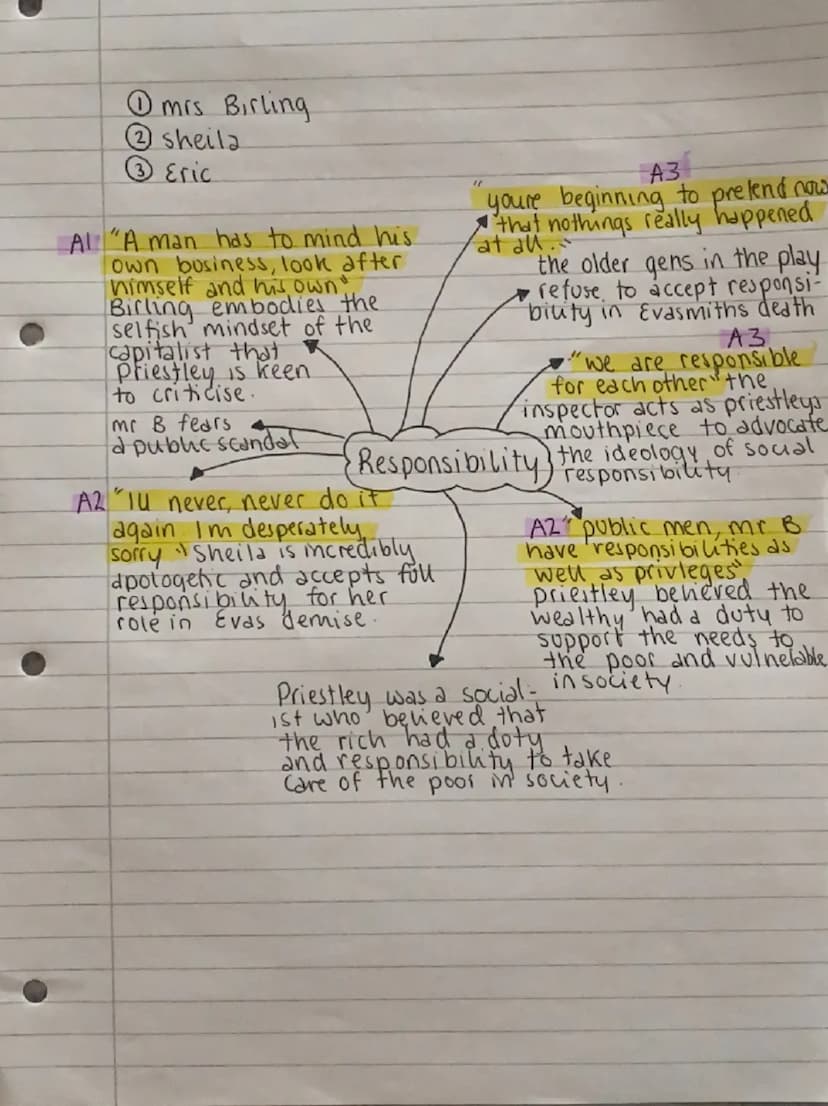 ① mrs Birling
② sheila
③ Eric
A1 "A man has to mind his
own business, look after
himself and his own"
Birling embodies the
selfish mindset of the
capitalist that
Priestley is keen
to criticise.
mr B fears
a public scandal
A2 "I'll never, never do it
again I'm desperately
sorry" Sheila is incredibly
apologetic and accepts full
responsibility for her
role in Evas demise.
A3
"youre beginning to pretend now
that nothings really happened
at all."
the older gens in the play
refuse to accept responsi-
bility in Evasmiths death
A3
"we are responsible
for each other" the
inspector acts as priestleys
mouthpiece to advocate
the ideology of social
responsibility
Responsibility
A2 "public men, mr B
have responsibilities as
well as privleges"
priestley believed the
wealthy had a duty to
support the needs to
the poor and vulnelable
in society.
Priestley was a social-
ist who believed that
the rich had a doty
and responsibility to take
care of the poor in society.